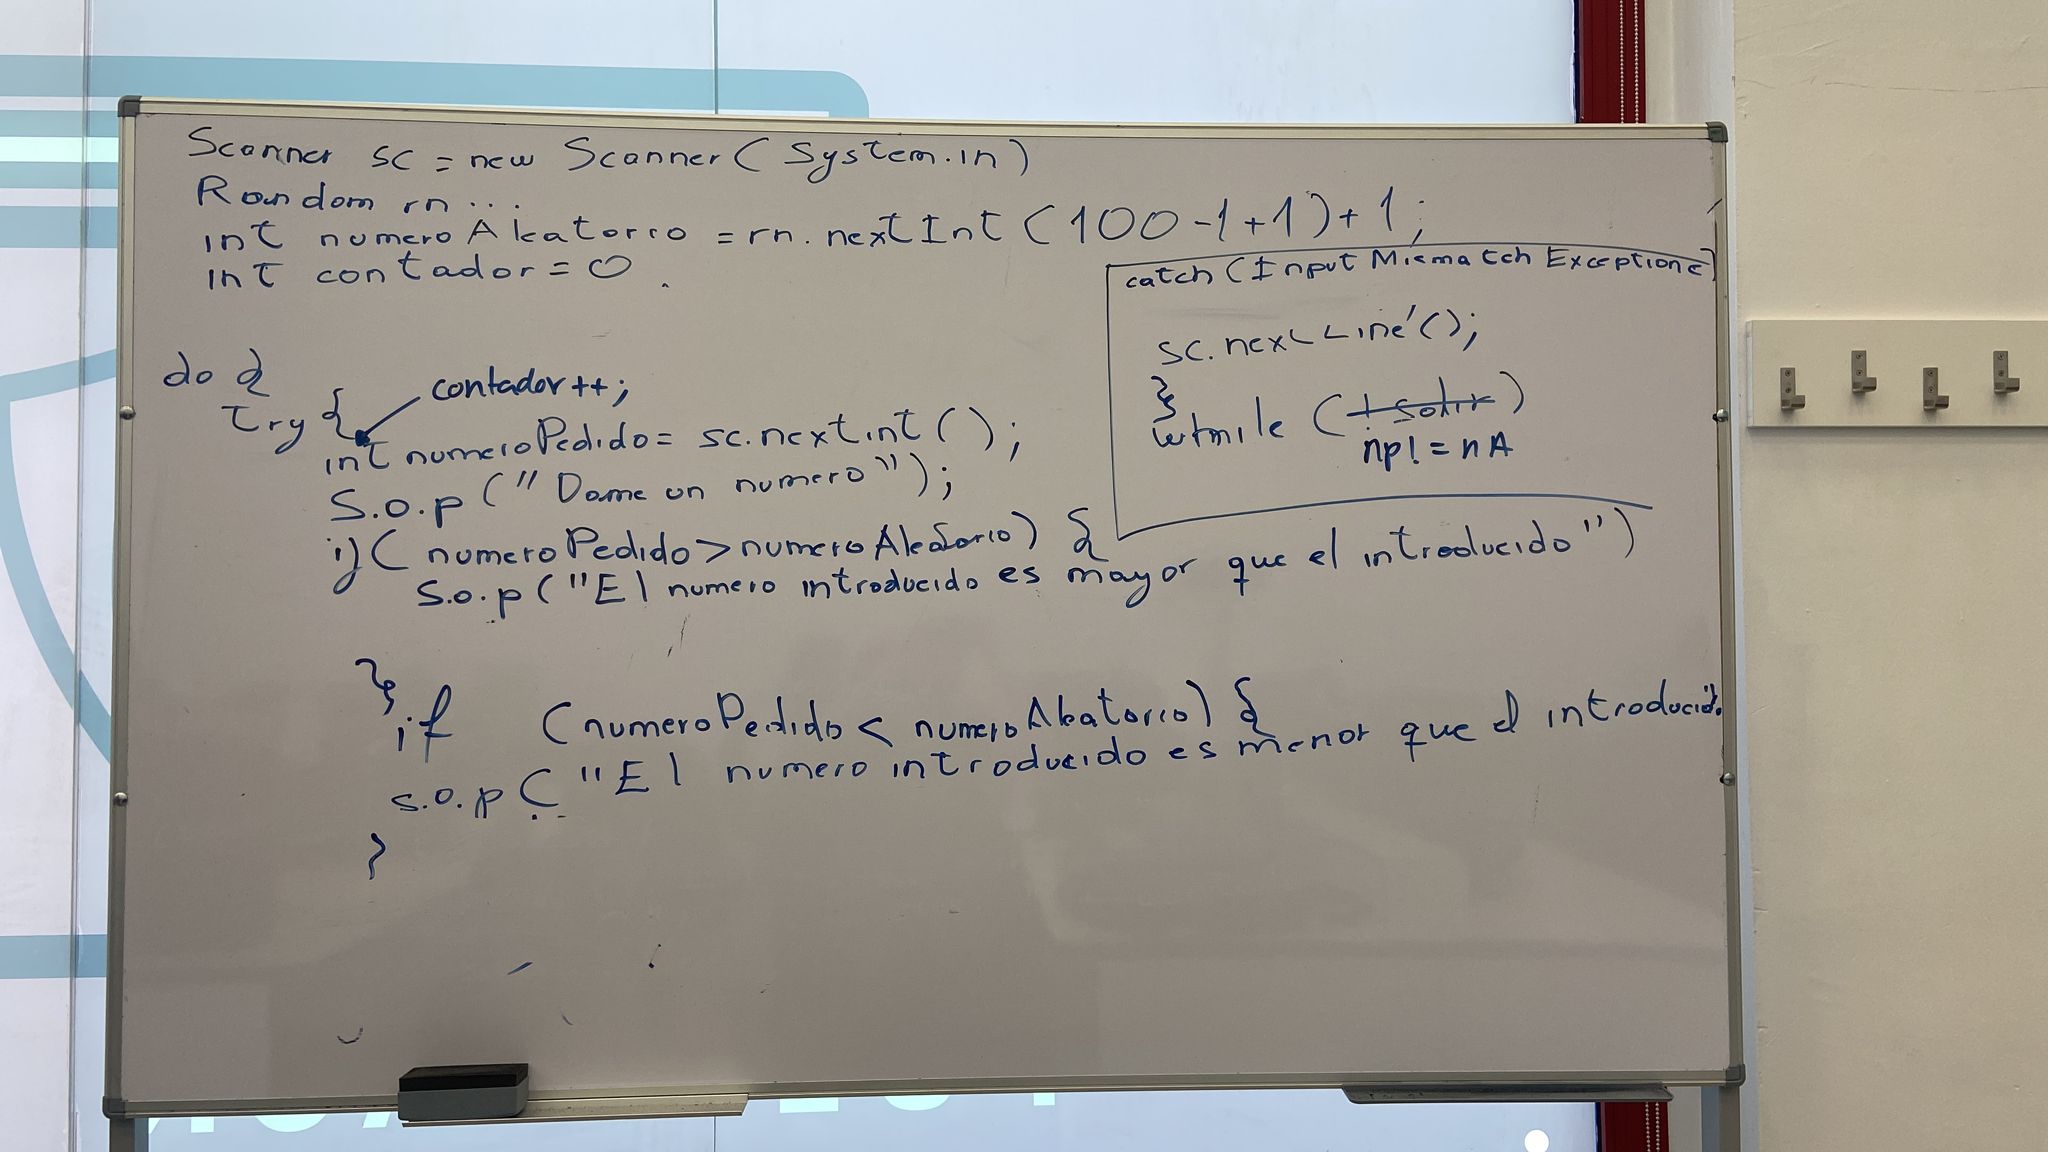 Scanner sc = new Scanner(System.in)
Random rn...
int numeroAleatorio = rn.nextInt(100-1+1)+1;
int contador=0
do {
contador++;
try {
int numeroPedido= sc.nextint();
S.o.p ("Dame un numero");
if( numeroPedido>numeroAleatorio) {
S.o.p ("El numero introducido es mayor que el introducido")
}
if (numeroPedido< numeroAleatorio) {
s.o.p ("El numero introducido es menor que el introducido
}
catch (Input Mismatch Exception e)
sc.nextLine();
}
while (
)
np!=nA